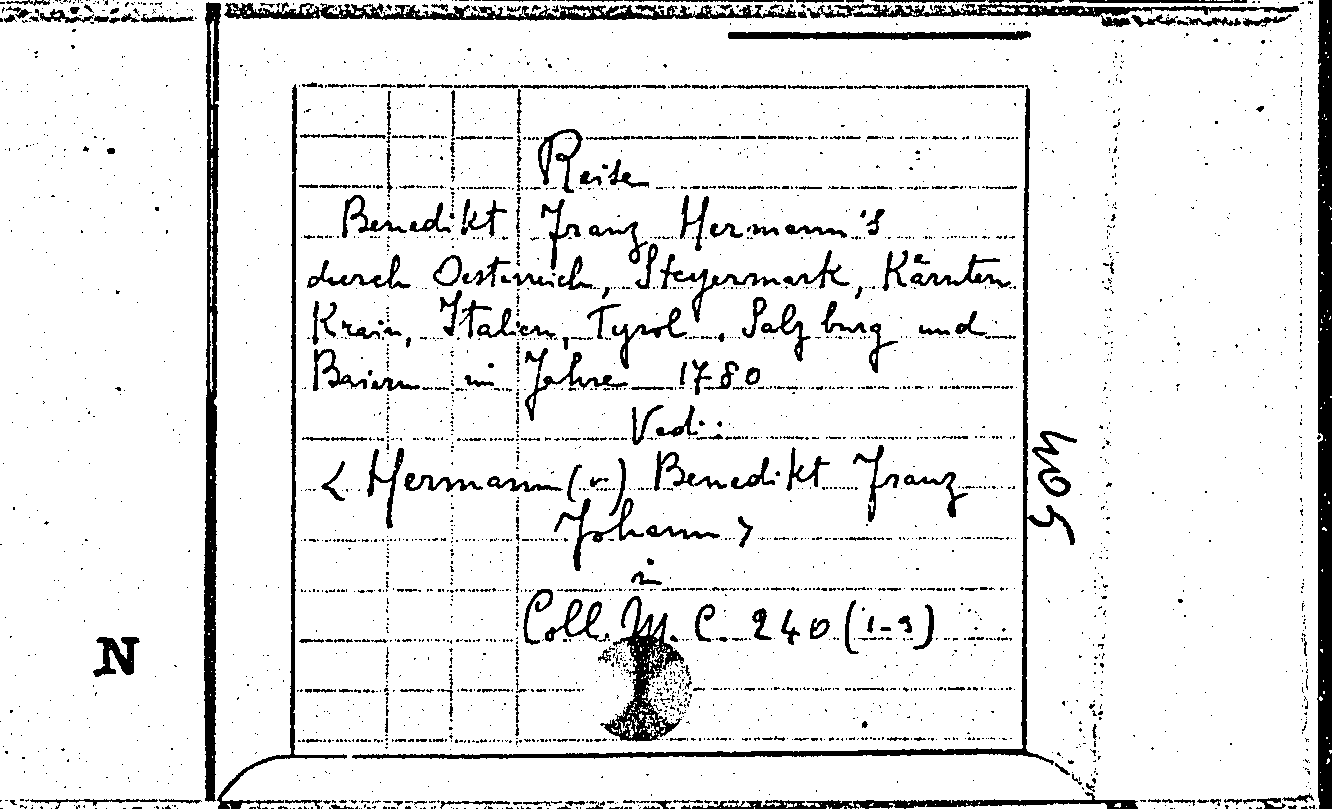 Reise
Benedikt Franz Hermann's
durch Oesterreich, Steyermark, Kärnten
Krain, Italien, Tyrol, Salzburg und
Baiern im Jahre 1780
Vedi:
< Hermann (v.) Benedikt Franz
Johann >
in
Coll. M. C. 240 (1-3)
N